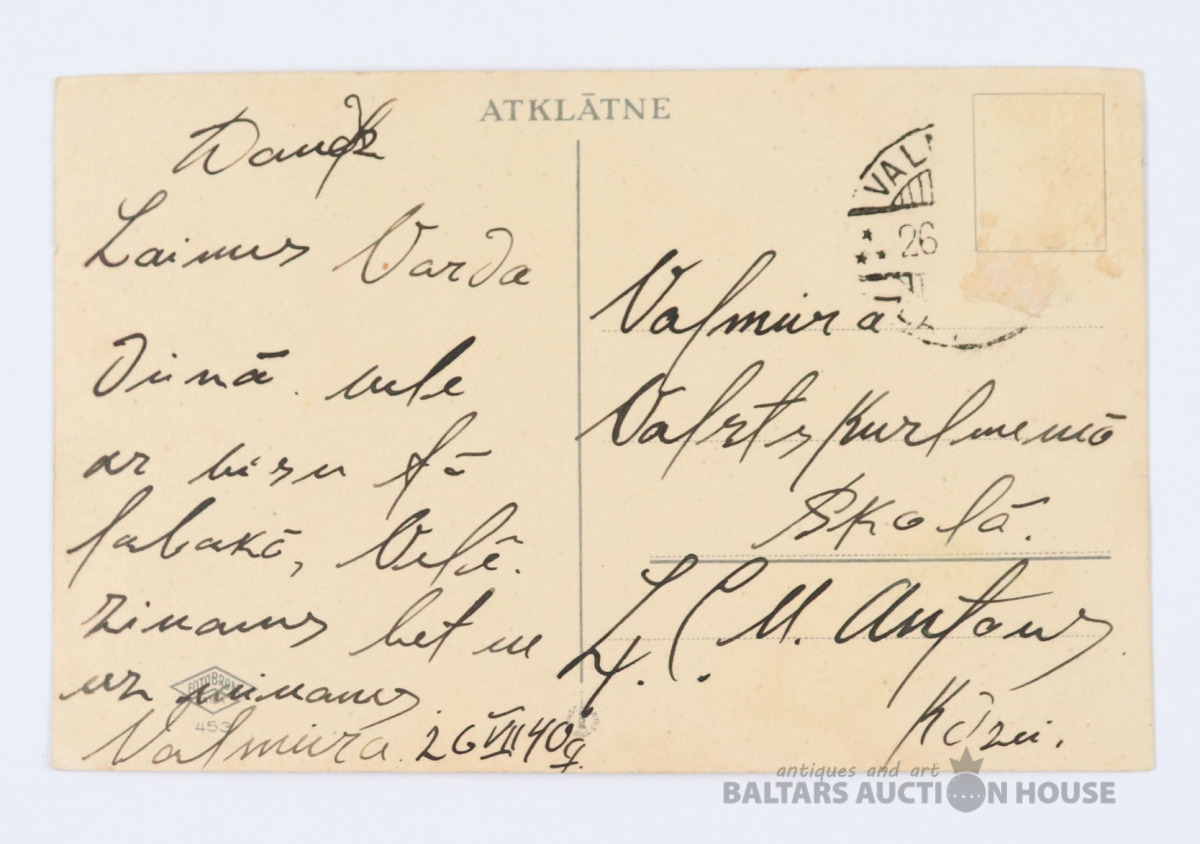 ATKLĀTNE
Daudz
Laimes Varda
Dienā. vele
ar visu tā
labakā, Vēlē.
Zinams bet ne
uz minams
Valmiera. 26 VII 40g.
FOTOBROM
453
VALM
26
Valmierā
Valsts Kurlmemō
Skolā.
L. C. M. Antons
Kōzei.
antiques and art
BALTARS AUCTION HOUSE